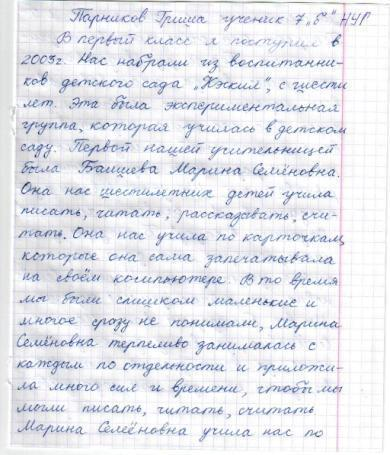 Парников Гриша ученик 7 „б" НУГ
В первый класс я поступил в
2003г. Нас набрали из воспитанни-
ков детского сада „Кэскил", с шести
лет. Эта была экспериментальная
группа, которая училась в детском
саду. Первой нашей учительницей
была Баишева Марина Семёновна.
Она нас шестилетних детей учила
писать, читать, рассказывать, счи-
тать. Она нас учила по карточкам,
которые она сама запечатывала
на своём компьютере. В то время
мы были слишком маленькие и
многое сразу не понимали, Марина
Семёновна терпеливо занималась с
каждым по отдельности и приложи-
ла много сил и времени, чтобы мы
могли писать, читать, считать
Марина Селеёновна учила нас по